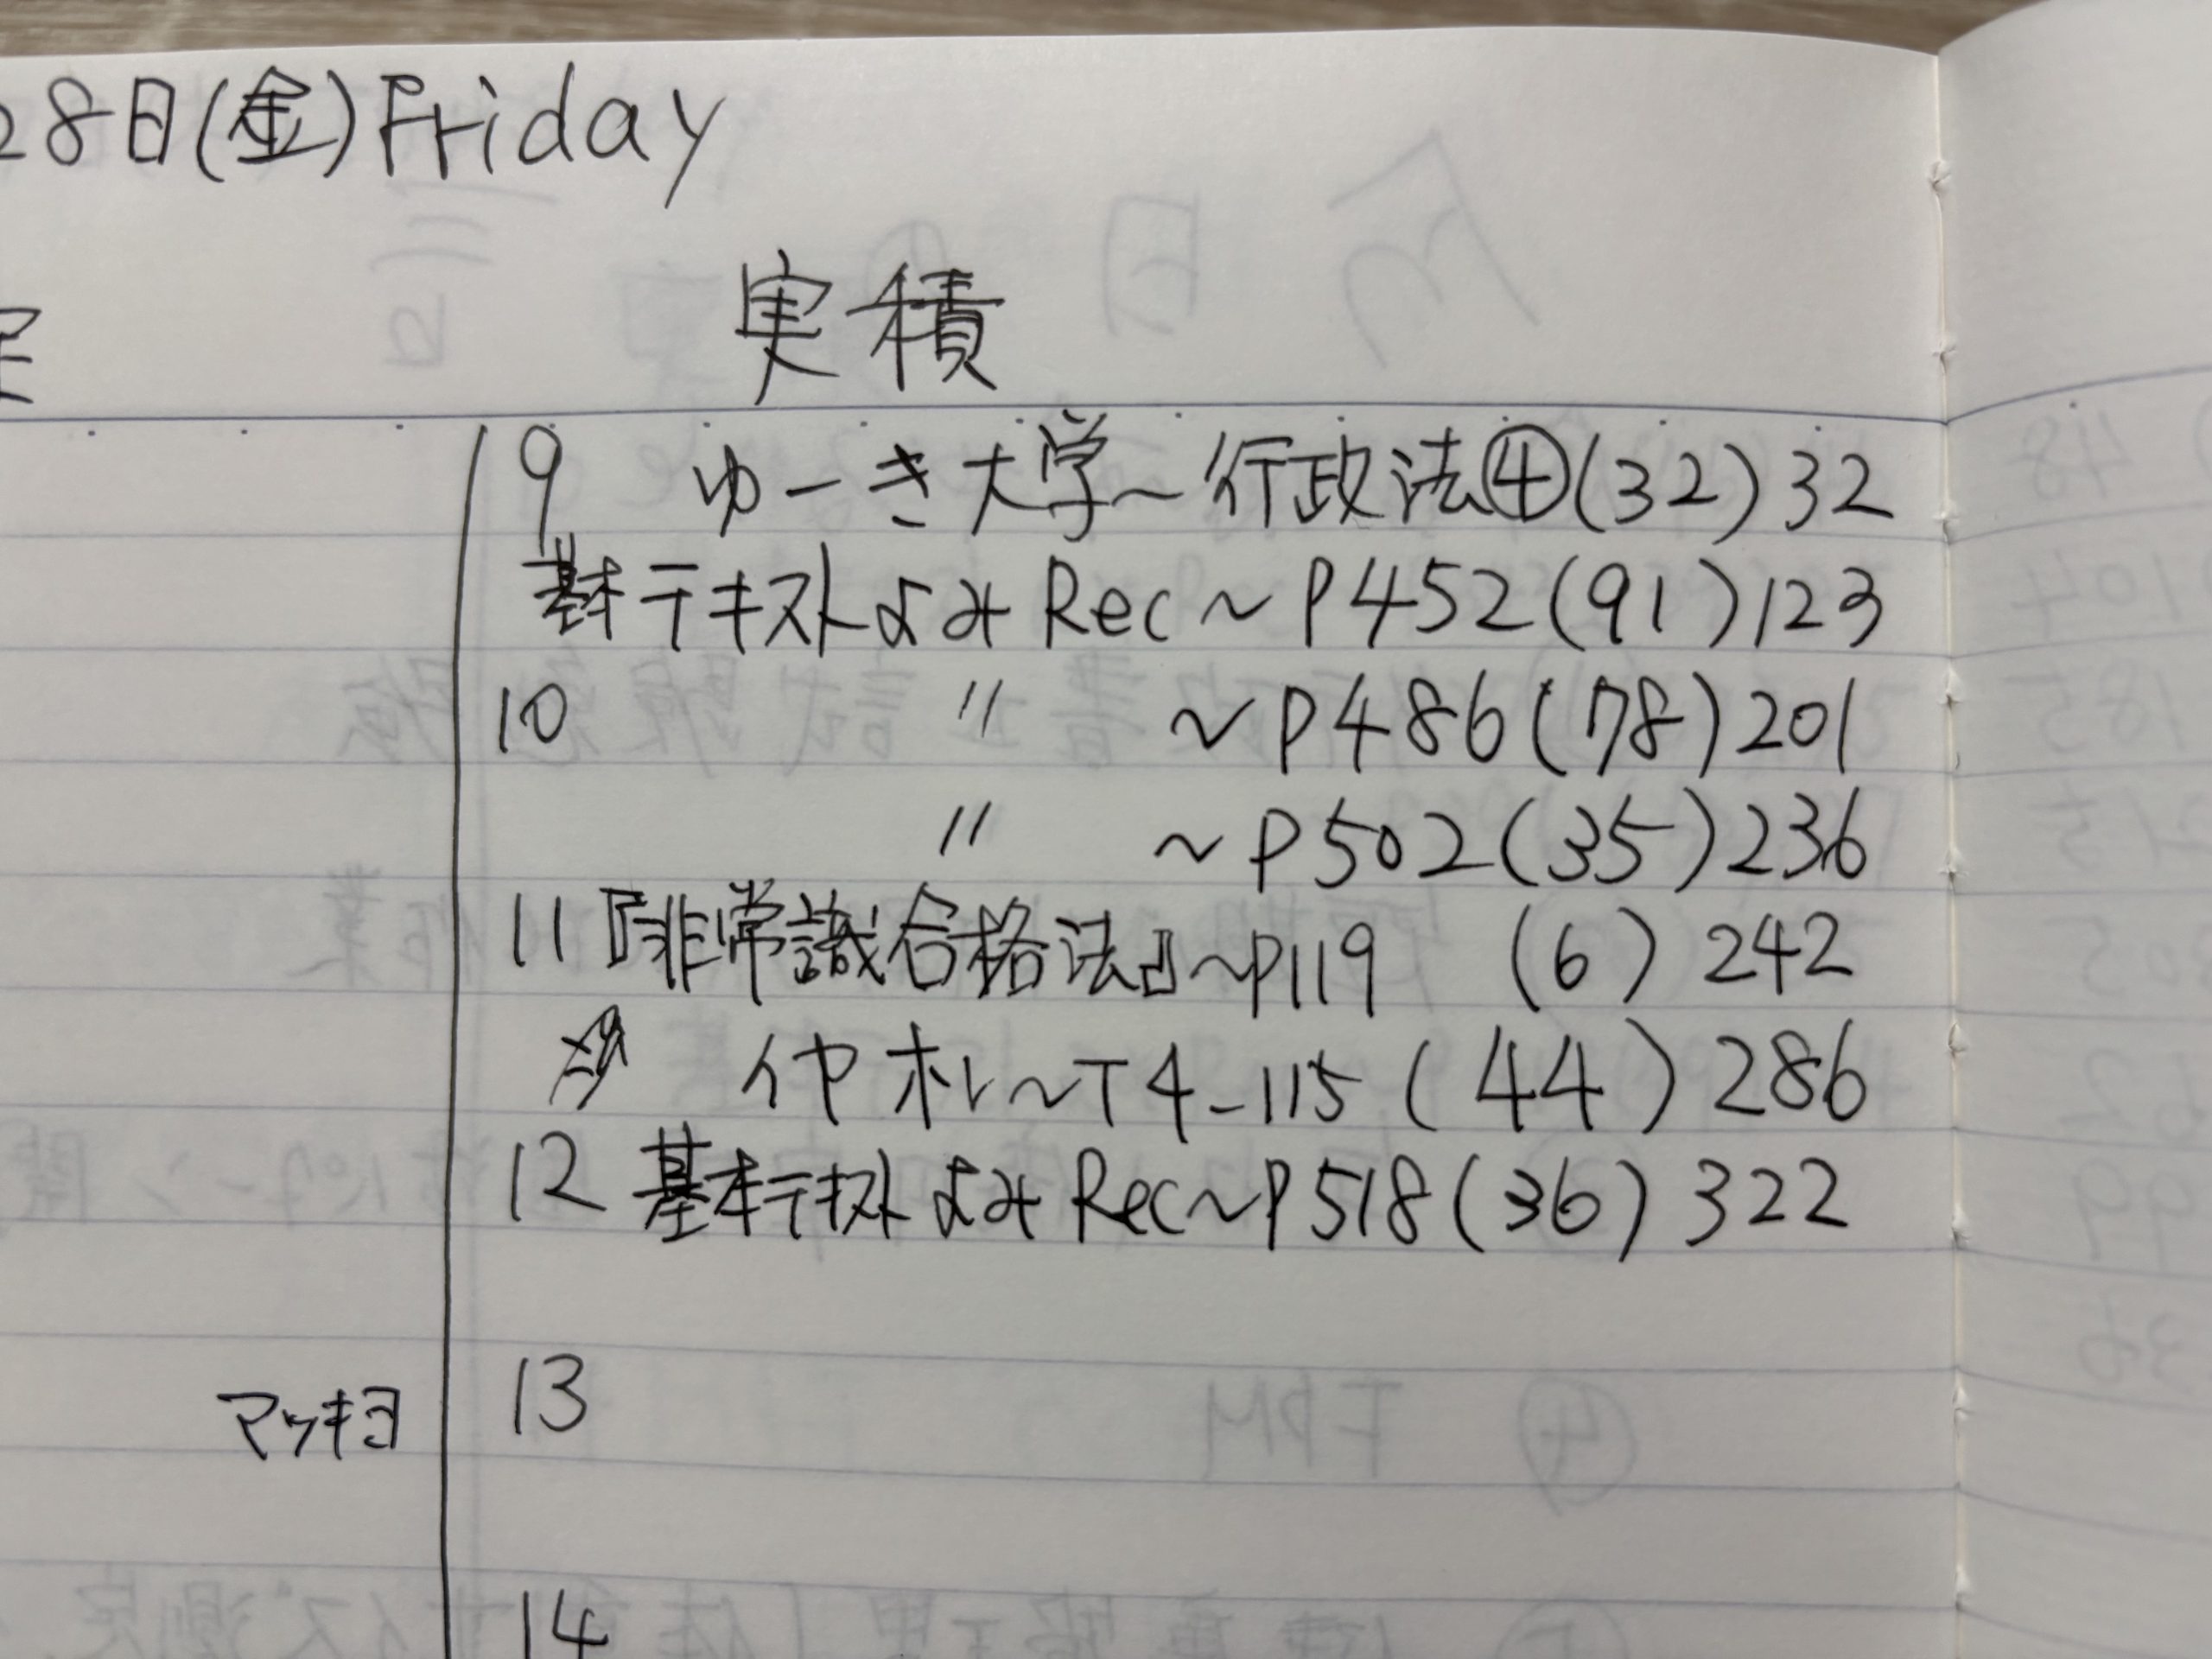 28日(金)Friday
実積
9 ゆーき大学~行政法④(32)32
基本テキストよみRec~P452(91)123
10 〃 ~P486(78)201
〃 ~P502(35)236
11『非常識合格法』~P119 (6) 242
イヤホン~T4-115(44)286
12 基本テキストよみRec~P518(36)322
マツキヨ 13
14